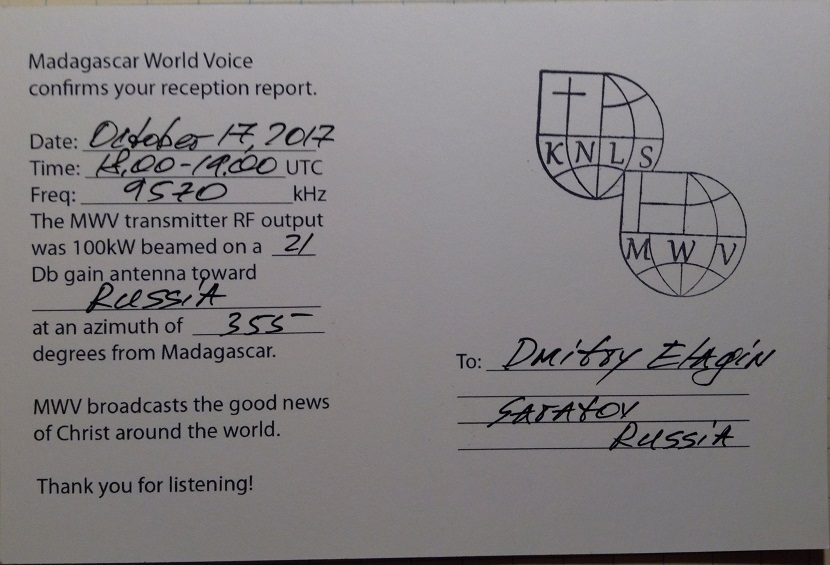 Madagascar World Voice
confirms your reception report.
Date: October 17, 2017
Time: 18.00-19.00 UTC
Freq: 9570 kHz
The MWV transmitter RF output
was 100kW beamed on a 21
Db gain antenna toward
Russia
at an azimuth of 355
degrees from Madagascar.
MWV broadcasts the good news
of Christ around the world.
Thank you for listening!
KNLS
MWV
To: Dmitry Elagin
Saratov
Russia